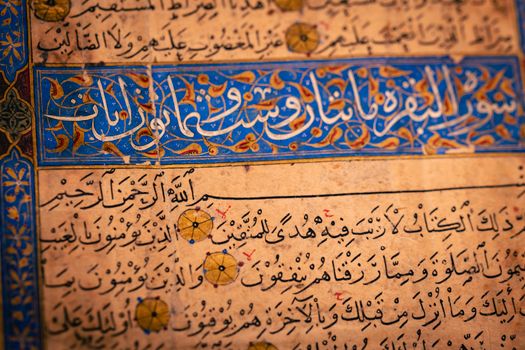 صراط المستقيم
غير المغضوب عليهم ولا الضالين
سورة البقرة مائتان وست وثمانون آيات
بسم الله الرحمن الرحيم
ذلك الكتاب لا ريب فيه هدى للمتقين الذين يؤمنون بالغيب
الصلوة ومما رزقناهم ينفقون والذين يؤمنون بما
إليك وما أنزل من قبلك وبالآخرة هم يوقنون أولئك على